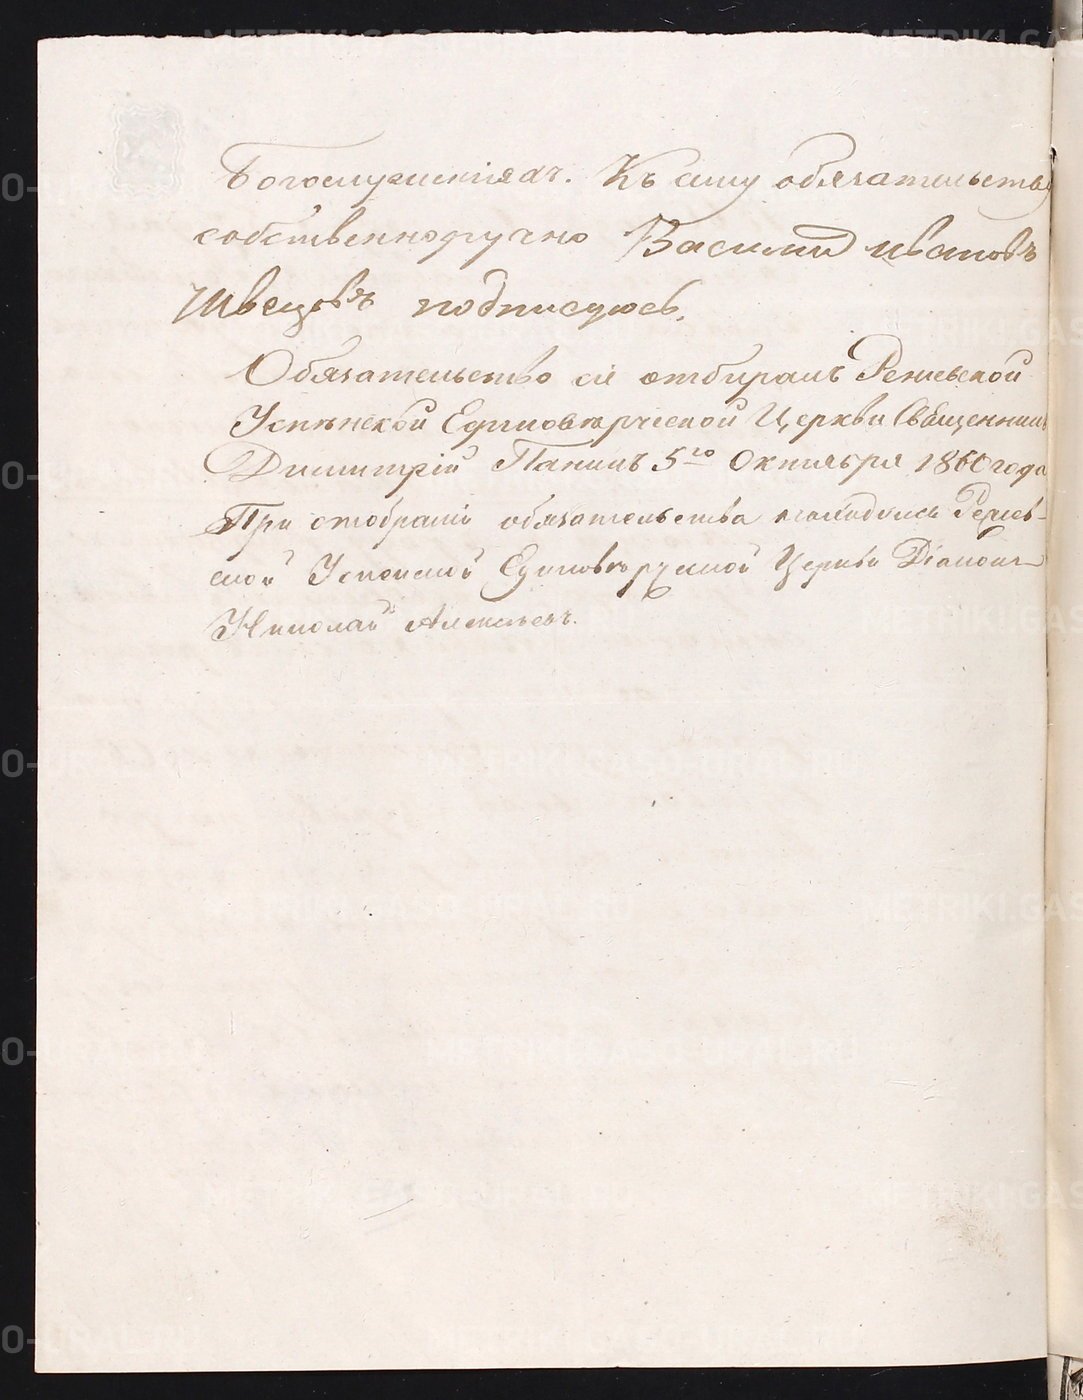 Богослуженіяхъ. Къ сему обязательству
собственноручно Василий ивановъ
Швецовъ подписуюсь.
Обязательство сіе отбиралъ Режевской
Успѣнской Единовѣрческой Церкви Священникъ
Димитрій Панинъ 5го Октября 1860 года
При отобраніи обязательства находился Режев-
ской Успенской Единовѣрческой Церкви Діаконъ
Николай Алексѣевъ.
METRIKI.GASO-URAL.RU